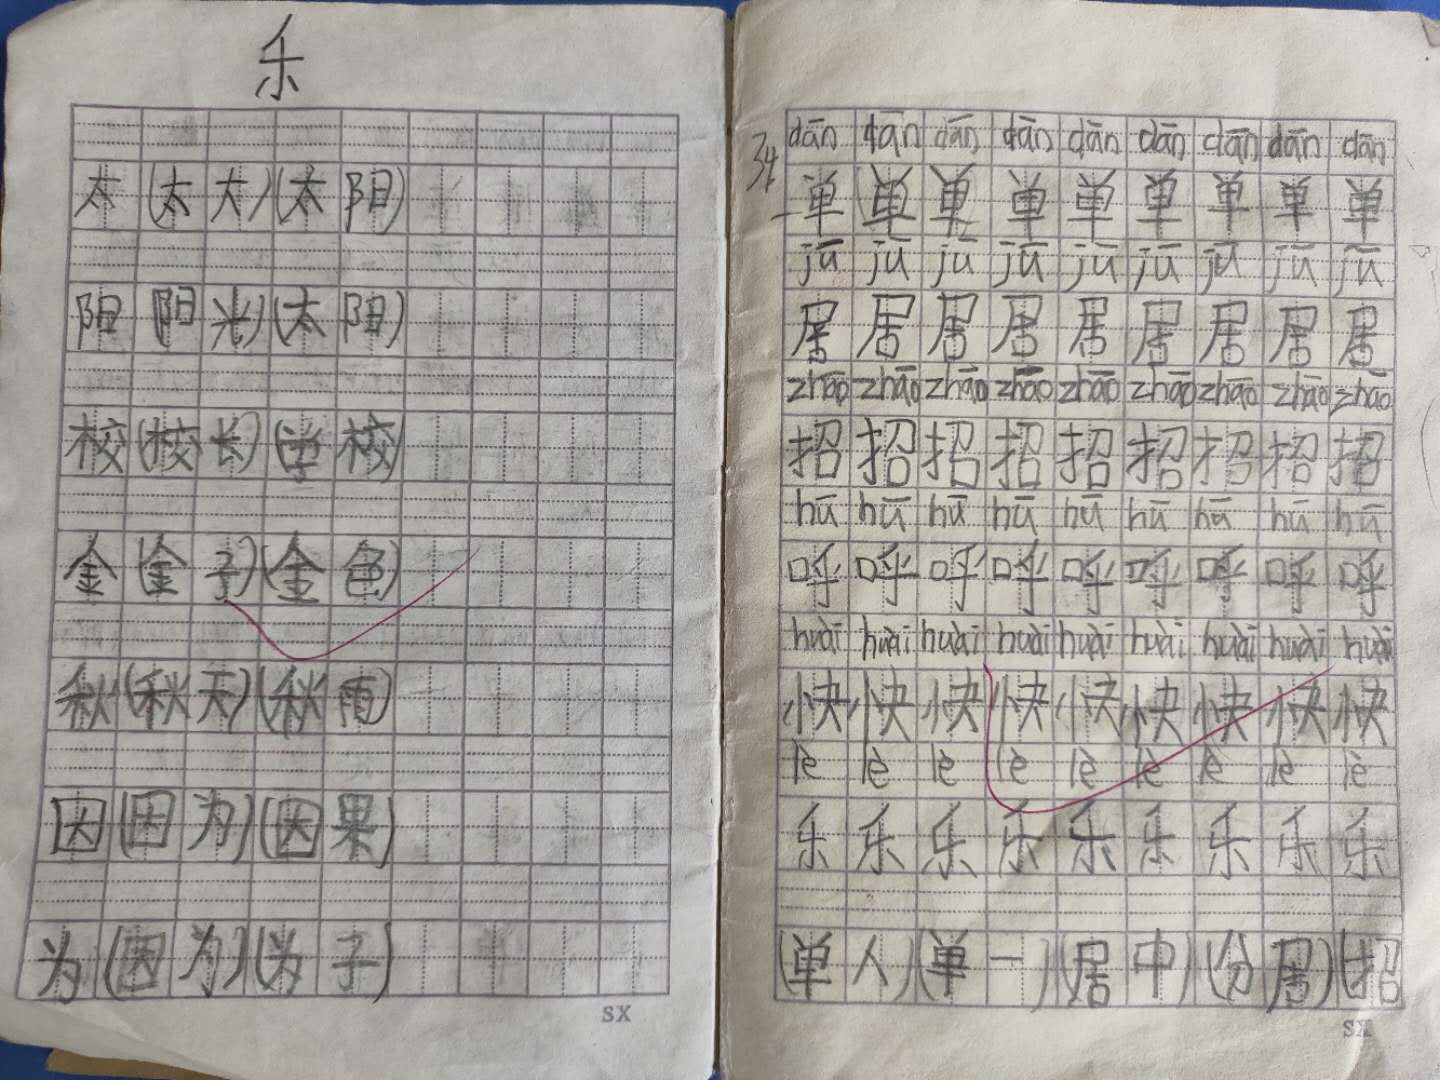 乐
太(太大)(太阳)
阳(阳光)(太阳)
校(校长)(学校)
金(金子)(金色)
秋(秋天)(秋雨)
因(因为)(因果)
为(因为)(为子)
SX
34
dān dān dān dān dān dān dān dān dān
单单单单单单单单单
jū jū jū jū jū jū jū jū jū
居居居居居居居居居
zhāo zhāo zhāo zhāo zhāo zhāo zhāo zhāo zhāo
招招招招招招招招招
hū hū hū hū hū hū hū hū hū
呼呼呼呼呼呼呼呼呼
huài huài huài huài huài huài huài huài huài
快快快快快快快快快
lè lè lè lè lè lè lè lè lè
乐乐乐乐乐乐乐乐乐
(单人)(单一)(居中)(分居)(招
SX